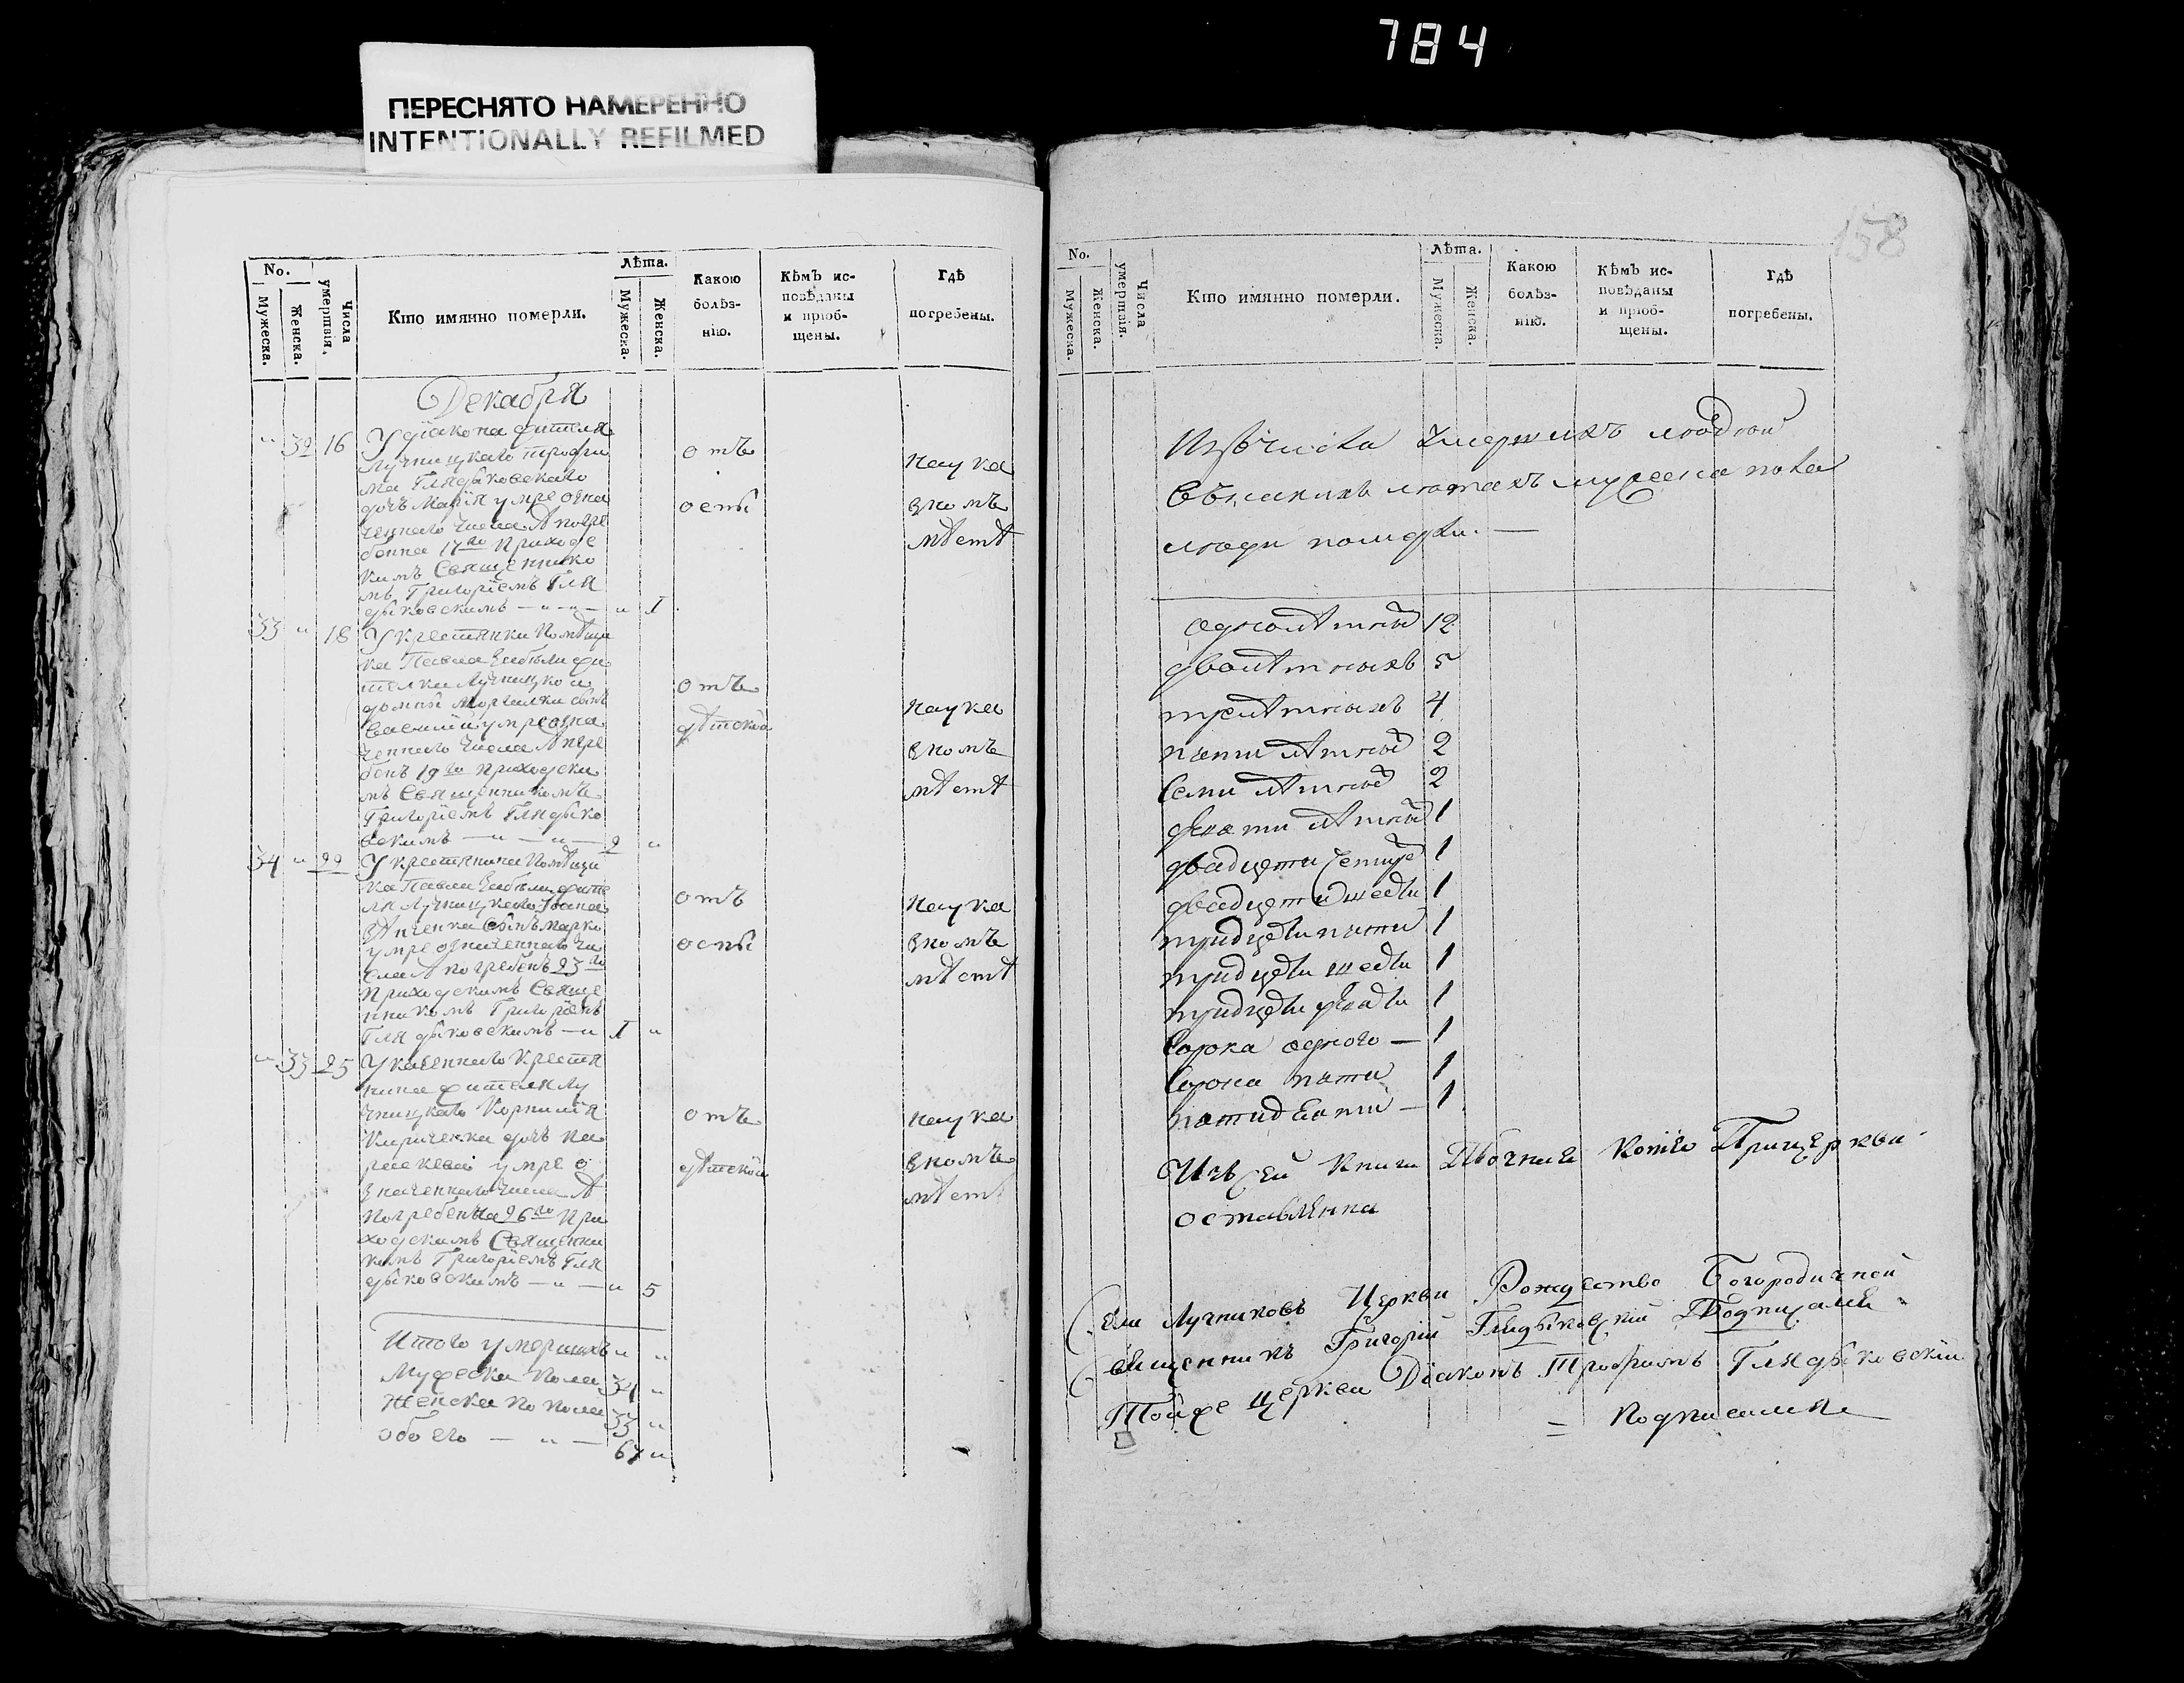 784
ПЕРЕСНЯТО НАМЕРЕННО
INTENTIONALLY REFILMED
No.
Мужеска.
Женска.
Числа умершвiя.
Кто имянно померли.
Лѣта.
Мужеска.
Женска.
Какою
болѣз-
нiю.
Кѣмъ ис-
повѣданы
и прiоб-
щены.
Гдѣ
погребены.
Декабря
" 32 16 У дiакона жителя
Лучницкаго Трофи
ма Глядыковскаго
дочь Марiя умре озна
ченнаго числа А погре
бенна 17го Приходс
кимъ Священнико
мъ Григорiемъ Гля
дыковскимъ — " — " — " 1
отъ
оспы
на ука
зномъ
мѣстѣ
33 " 18 У крестянки Помѣщи
ка Павла жи
телки Лучницкой
Домны сынъ
Василiй умре озна
ченнаго числа А погре
бенъ 19го Приходски
мъ Священникомъ
Григорiемъ Глядыко
вскимъ — " — " — 2 "
отъ
дѣтской
на ука
зномъ
мѣстѣ
34 " 22 У крестянина Помѣщи
ка Павла жите
ля Лучницкаго Iвана
сынъ Марко
умре означеннаго чи
сла А погребенъ 23го
Приходскимъ Свяще
нникомъ Григорiемъ
Глядыковскимъ — " 1 "
отъ
оспы
на ука
зномъ
мѣстѣ
" 33 25 У казеннаго крестя
нина жителя Лу
чницкаго Корнилiя
Кириченка дочь Па
раскева умре о
значеннаго числа А
погребенна 26го При
ходскимъ Священни
комъ Григорiемъ Гля
дыковскимъ — " — " 5
отъ
дѣтской
на ука
зномъ
мѣстѣ
Итого умершихъ " "
Мужеска пола 34 "
Женска по пола 33 "
обоего — " — 67 "
158
No.
Мужеска.
Женска.
Числа умершвiя.
Кто имянно померли.
Лѣта.
Мужеска.
Женска.
Какою
болѣз-
нiю.
Кѣмъ ис-
повѣданы
и прiоб-
щены.
Гдѣ
погребены.
Изъ числа умершихъ людей
въ какихъ лѣтахъ мужеска пола
люди померли. —
однолѣтный 12
дволѣтныхъ 5
трелѣтныхъ 4
пяти лѣтный 2
семи лѣтный 2
девяти лѣтный 1
двадцети четире 1
двадцети шести 1
тридцети пяти 1
тридцети шести 1
тридцети девяти 1
сорока одного — 1
сорока пяти 1
пятидесяти — 1
Изъ сей книги копiю Прицеркви
оставленна
Села Лучниковъ Церкви Рождество Богородичной
Священникъ Григорiй Глядыковскiй Подписался
Тойже Церкви Дiаконъ Трофимъ Глядыковскiй
= Подписался